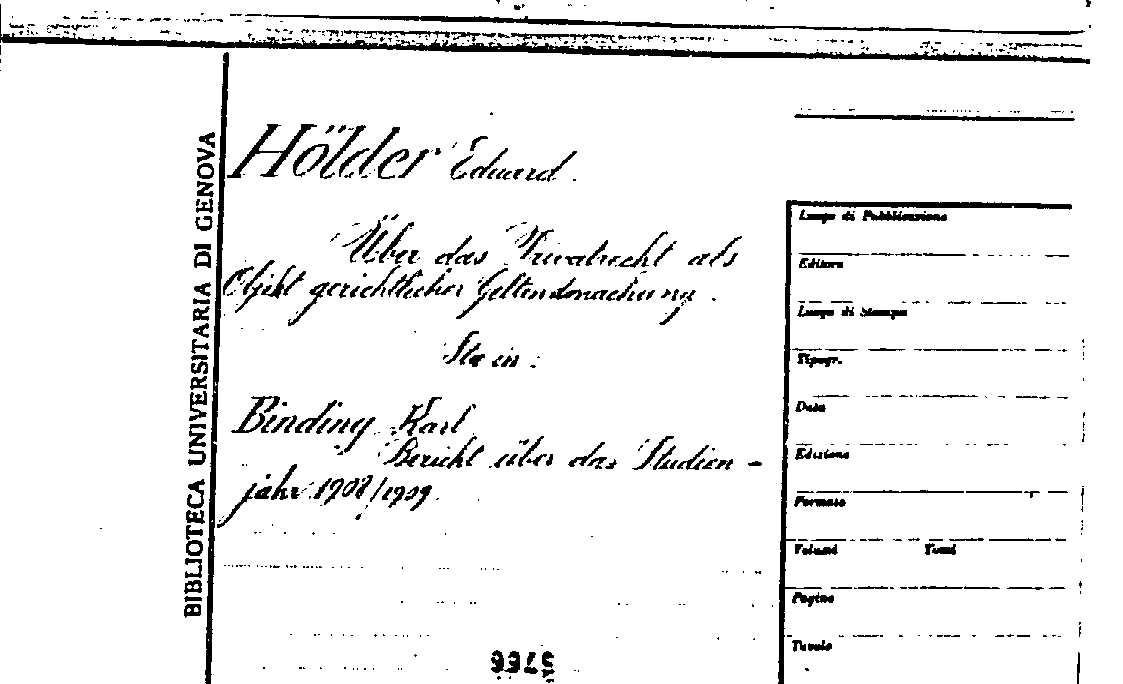 BIBLIOTECA UNIVERSITARIA DI GENOVA
Hölder Eduard.
Über das Privatrecht als
Objekt gerichtlicher Geltendmachung.
Sta in:
Binding Karl
Bericht über das Studien-
jahr 1908/1909.
Luogo di Pubblicazione
Editore
Luogo di Stampa
Tipogr.
Data
Edizione
Formato
Volumi Tomi
Pagine
Tavole